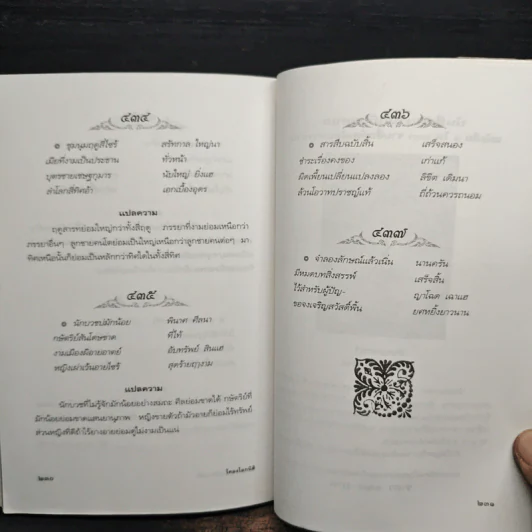 ๔๓๔
๏ ชุมนุมฤดูสี่ไซร้ สรัทกาล ใหญ่นา
เมียที่งามเป็นประธาน ทั่วหน้า
บุตรชายเชรษฐกุมาร นับใหญ่ ยิ่งแฮ
ล่าโลกสี่ทิศถ้า เอกเบื้องอุดร
แปลความ
ฤดูสารทย่อมใหญ่กว่าทั้งสี่ฤดู ภรรยาที่งามย่อมเหนือกว่า
ภรรยาอื่นๆ ลูกชายคนโตย่อมเป็นใหญ่เหนือกว่าลูกชายคนต่อๆ มา
ทิศเหนือนั้นก็ย่อมเป็นหลักกว่าทิศใดในทั้งสี่ทิศ
๔๓๕
๏ นักบวชบ่มักน้อย พินาศ ศีลนา
กษัตริย์สันโดษชาต ที่โท้
งามเมืองมีอายอาตย์ อับทรัพย์ สินแฮ
หญิงเผ่าเว้นอายไซร้ สุดร้ายฤๅงาม
แปลความ
นักบวชที่ไม่รู้จักมักน้อยอย่างสมถะ ศีลย่อมขาดได้ กษัตริย์ที่
มักน้อยย่อมขาดแสนยานุภาพ หญิงขายตัวถ้ามัวอายก็ย่อมไร้ทรัพย์
ส่วนหญิงที่ดีถ้าไร้ยางอายย่อมดูไม่งามเป็นแน่
๒๓๐ โคลงโลกนิติ
๔๓๖
๏ สารสืบฉบับสิ้น เสร็จสนอง
ชำระเรื่องคงของ เก่าแก้
ผิดเพี้ยนเปลี่ยนแปลงลอง ลิขิต เติมนา
ล้วนโอวาทปราชญ์แท้ ถี่ถ้วนควรถนอม
๔๓๗
๏ จำลองลักษณ์แล้วเนิ่น นานครัน
มีหมดบทสิ่งสรรพ์ เสร็จสิ้น
ไว้สำหรับผู้ปัญ- ญาโฉด เฉาแฮ
ขอจงเจริญสวัสดิ์พื้น ยศหยิ่งยาวนาน
๒๓๑